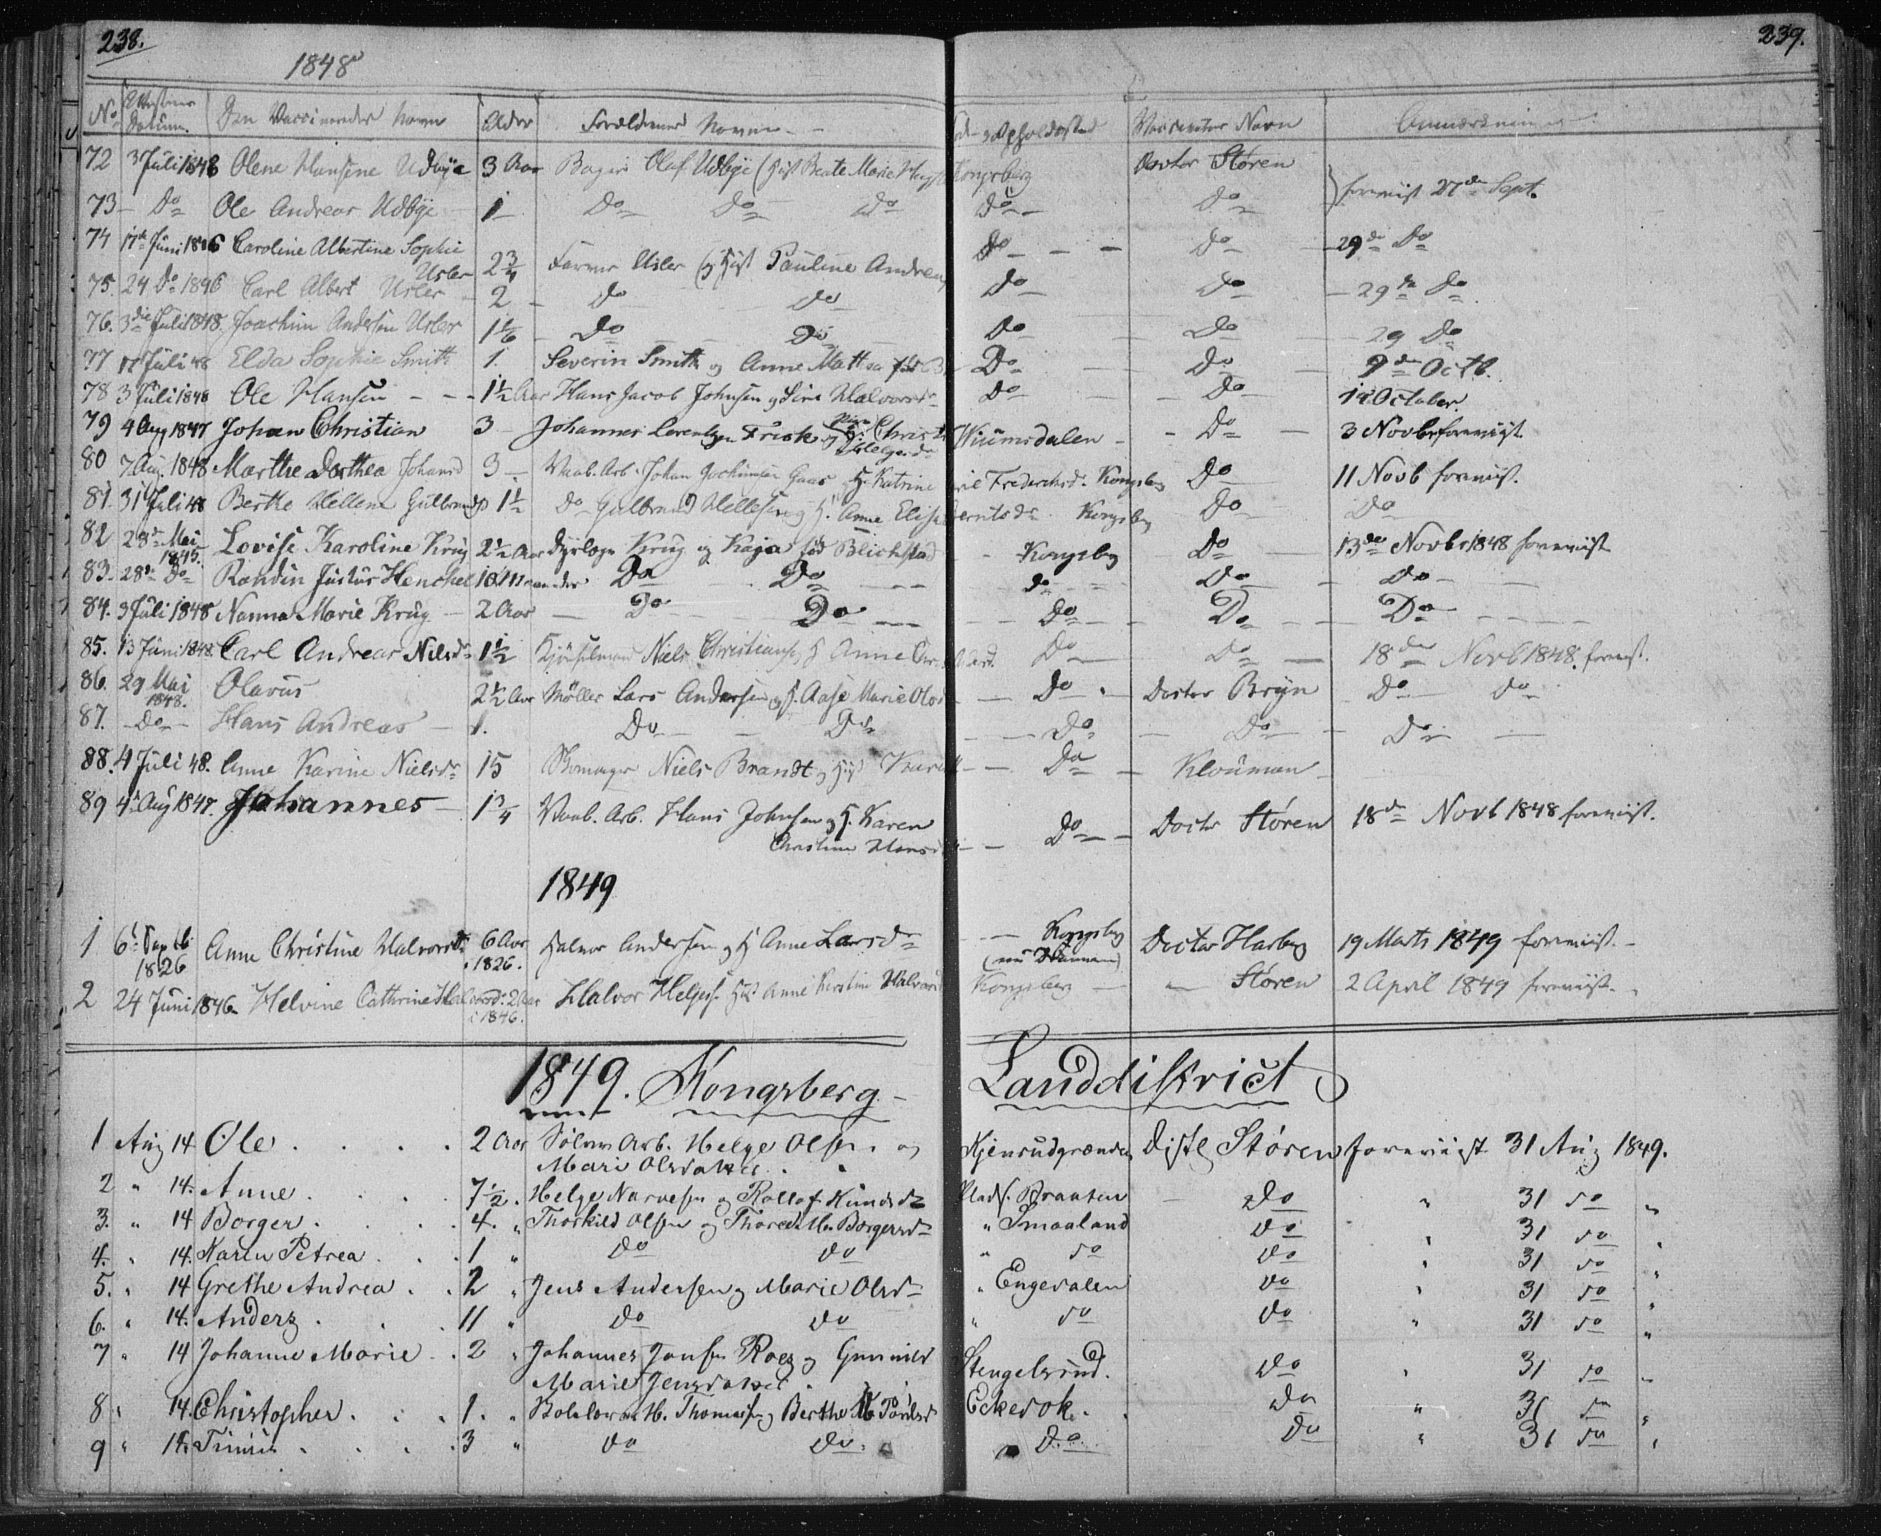 238.
239.
1848
No Attestens Datum. Den Vaccineredes Navn Alder Forældrenes Navne Opholdssted Vaccinateur Navn Anmærkninger
72 3 Juli 1848 Olene Hansine Udbye 3 Aar Bager Olaf Udbye Kongsberg Doctor Støren
73 Do Ole Andreas Udbye 1 Do Do Do Do Do foreviist 27de Sept.
74 17de Juni 1846 Caroline Albertine Sophie
Usler 2 3/4 Farver Usler og Hust Pauline Andrea Do Do 29de Do
75. 24 Do 1846 Carl Albert Usler 2 Do Do Do Do 29de Do
76. 3die Juli 1848. Joachim Andersen Usler 1 1/6 Do Do Do Do 29 Do
77 17 Juli 48 Elda Sophie Smith 1. Severin Smith og Anne Mathea Do Do 9de Octb.
78 3 Juli 1848 Ole Hansen 1 1/2 Aar Hans Jacob Johnsen og Halvorsd Do Do 14 October.
79 4 Aug 1847 Johan Christian 3 Johannes Lorentzen Frisk og Do 3 Novbr foreviist
80 7 Aug. 1848 Marthe Dorthea Johansd 3 Vaab. Arb. Johan Gaas H. Katrine Fredriksd. Kongsberg Do 11 Novb foreviist.
81. 31 Juli 48 Berthe Hellene Gulbrands 1 1/2 Do Gulbrand Hellesen og H. Anne Kongsberg Do Do
82 28de Mai
1845. Lovise Karoline Krug 2 1/2 Aar Krug og Kaja fød Blichfeld Kongsberg Do 13de Novbr 1848 foreviist
83. 28de Do Justus Henchel 10 Maaneder Do Do do Do Do
84. 3 Juli 1848 Nanna Marie Krug 2 Aar Do Do Do Do Do
85. 13 Juni 1848. Carl Andreas Nilsd 1 1/2 Niels Christians H Anne Do Do 18de Novb 1848. foreviist.
86. 29 Mai
1848. Olavus 2 1/2 Aar Møller Lars Andersen og H. Aase Marie Do Doctor Bryn Do do
87. Do Hans Andreas 1. Do Do Do Do Do
88. 4 Juli 48. Anne Karine Nielsd 15 Skomager Niels Brandt og Hust Do Klouman
89 4de Aug 1847. Johannes 1 3/4 Vaab. Arb. Hans Johnsen og H. Karen
Christine Do Doctor Støren 18de Novb 1848 foreviist.
1849
1 6te Septb
1826 Anne Christine Halvorsd. 6 Aar
1826. Halvor Andersen og H Anne Larsd Kongsberg Doctor Harboe 19 Marts 1849 foreviist.
2 24 Juni 1846 Helvine Cathrine Halvorsd: 2 Aar
1846. Halvor Helges Hust Anne Kirstine Halvorsd Kongsberg Støren 2 April 1849 foreviist.
1849. Kongsberg Landdistrict
1 Aug 14. Ole 2 Aar Sølvv. Arb. Helge Olsen og
Mari Olsdatter Kjensrudgrænden Distl Støren foreviist 31 Aug 1849.
2 " 14. Anne 7 1/2. Helge Narvesen og Plads. Braaten Do " 31 do "
3. " 14 Borger 4. " Thorkild Olsen og Borgersd " Smaaland do " 31 do "
4. " 14. Karen Petrea 1 " do do " do do " 31 do "
5. " 14 Grethe Andrea 2 " Jens Andersen og Marie Olsd " Engedalen do " 31 do "
6. " 14. Anders 11 " do do " do do " 31 do "
7 " 14 Johanne Marie 2 " Johannes Jonsen og Gunnild
Marie Jensdatter Stengelsrud. do " 31 do "
8 " 14. Christopher 1. " H. Thomas og Berthe Eckedok. do " 31 do "
9 " 14. 3 " do do. Do. Do " 31 do "